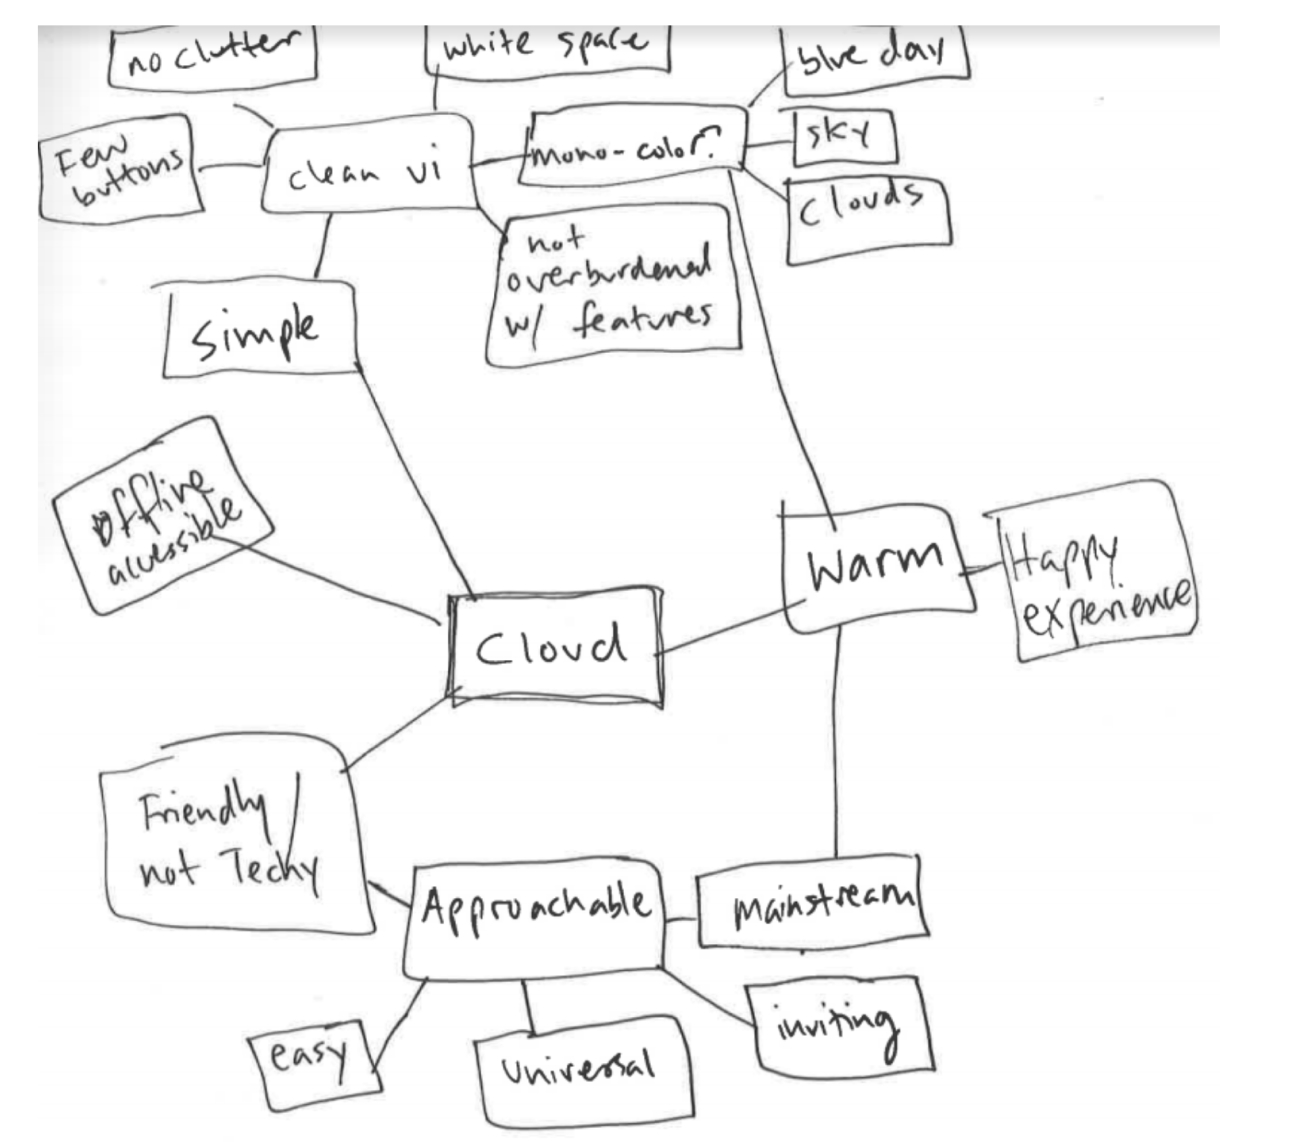 no clutter
white space
blue day
Few
buttons
clean ui
mono-color?
sky
clouds
not
overburdened
w/ features
simple
offline
accessible
Warm
Happy
experience
Cloud
Friendly /
not Techy
Approachable
mainstream
inviting
easy
Universal